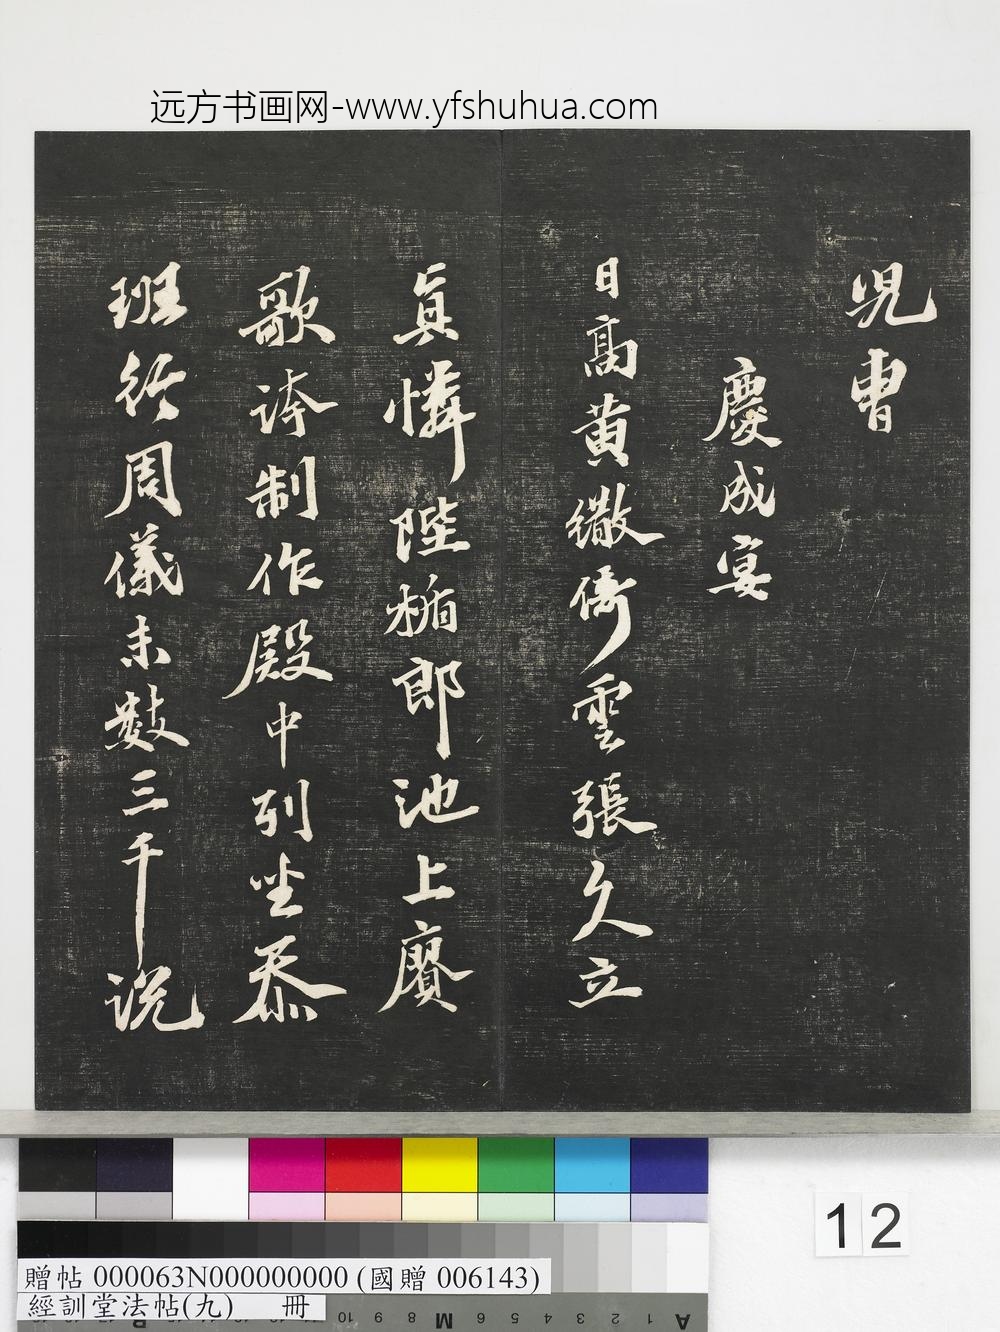 远方书画网-www.yfshuhua.com
児曹
慶成宴
日高黄繖倚雲張久立
真憐陛楯郎池上賡
歌誇制作殿中列坐忝
班行周儀未数三千
说
12
贈帖 000063N000000000 (國贈 006143)
經訓堂法帖(九) 冊